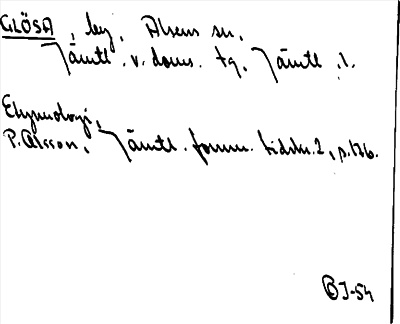 GLÖSA, by, Alsens sn,
Jämtl. v. doms. tg, Jämtl. l.
Etymologi,
P. Olsson, Jämtl. fornm. tidskr. 2, s. 136.
BJ-54